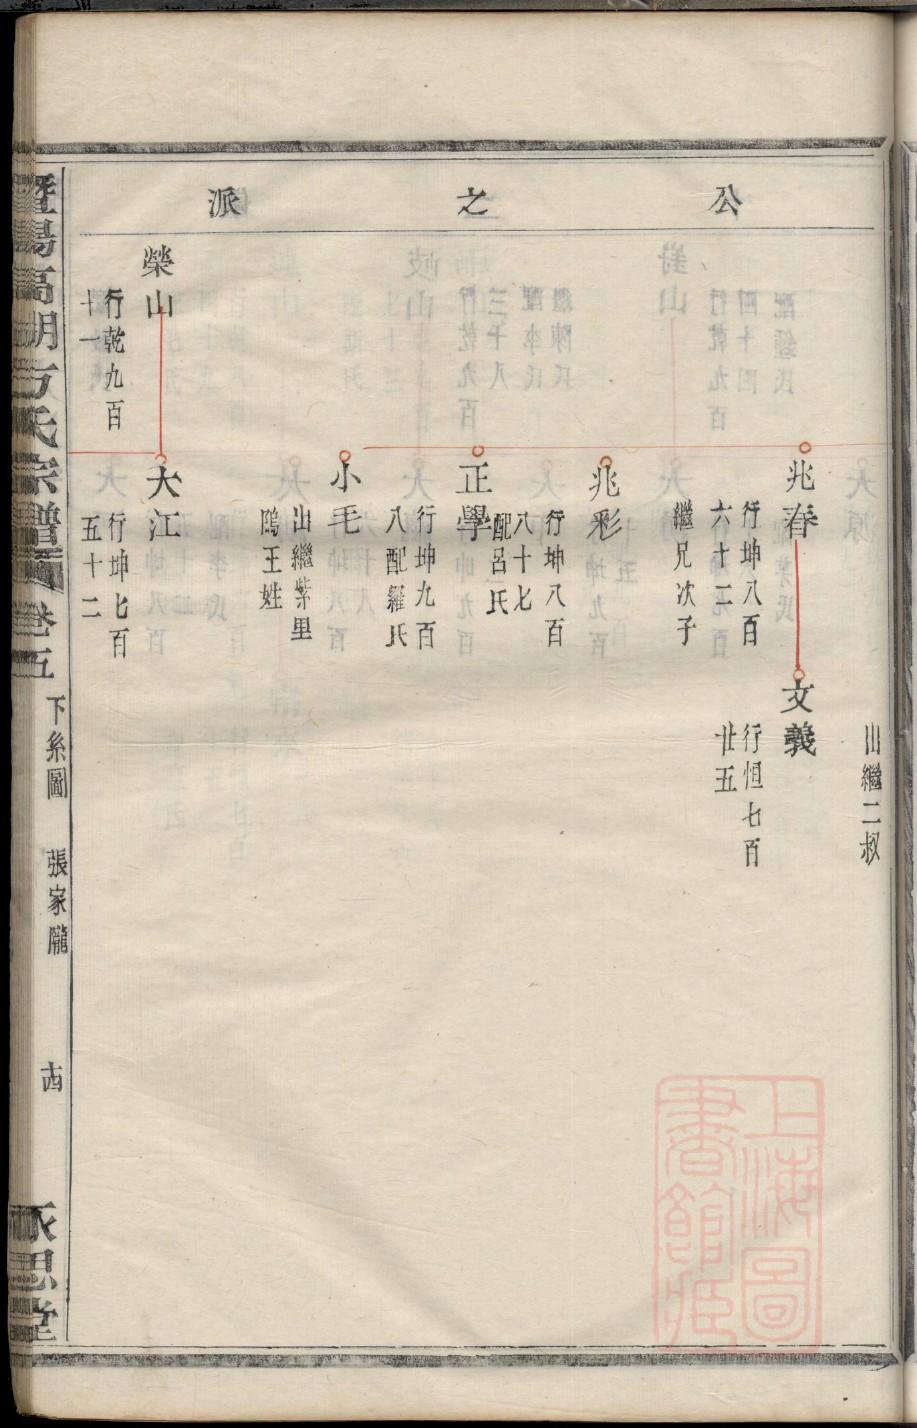 公之派
出繼二叔
兆春
行坤八百
六十二
繼兄次子
文義
行恒七百
廿五
兆彩
行坤八百
八十七
配呂氏
正學
行坤九百
八配羅氏
小毛
出繼柴里
鴎王姓
榮山
行乾九百
十一
大江
行坤七百
五十二
暨陽高湖方氏宗譜
卷五
下系圖
張家隴
十四
永思堂
上海圖
書館藏